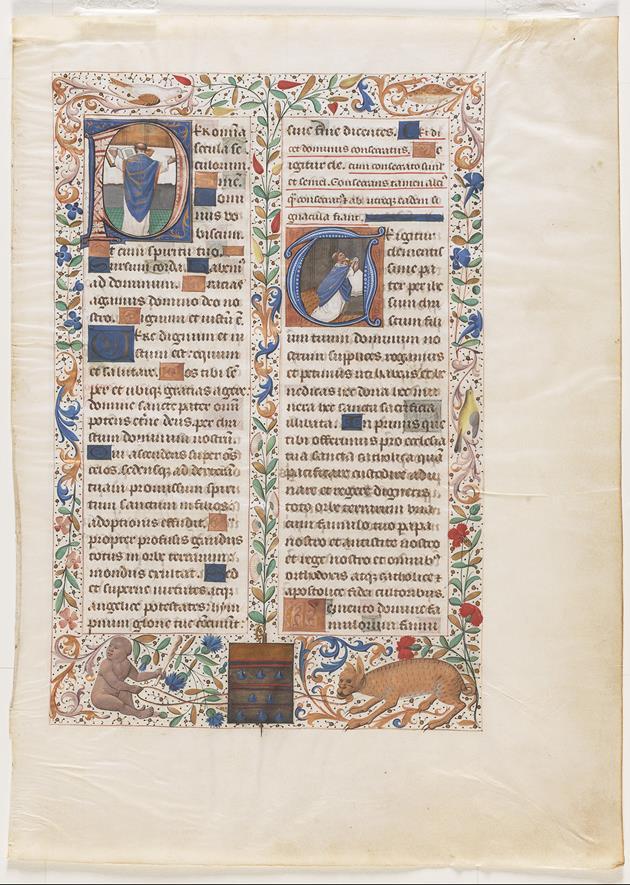 Per omnia
secula se
culorum
Amē.
Domi
nus vo
biscum.
Et cum spiritu tuo.
Sursum corda. Habem⁹
ad dominum. Gratias
agamus domino deo no
stro. Dignum et iustū ē.
Vere dignum et iu
stum est: equum
et salutare. Nos tibi sē
per et ubiq; gratias agere:
domine sancte pater omī
potens etne deus. per chri
stum dominum nostrū.
Qui ascendens super oēs
celos. sedensq; ad dexterā
tuam promissum spiri
tum sanctum in filios
adoptionis effudit. Qua
propter profusis gaudiis
totus in orbe terrarum
mundus exultat. Sed
et superne virtutes atq;
angelice potestates: hym
pnum glorie tue concinunt
sine fine dicentes. Et di
cet dominus consecrans. Te
igitur etc.
et semel. Consecrans tamen
gnacula fiant.
Te igitur
clementis
sime pa
ter per ihe
sum chri
stum fili
um tuum dominum no
strum supplices rogamus
et petimus uti habeas et be
nedicas hec dona hec mu
nera hec sancta sacrificia
illibata. In primis que
tibi offerimus pro ecclesia
tua sancta catholica quā
pacificare custodire adu
nare et regere digneris
toto orbe terrarum una
cum famulo tuo papa
nostro et antistite nostro
et rege nostro et omnib⁹
orthodoxis atq; catholice et
apostolice fidei cultorib⁹
Memento domine fa
mulorum famu